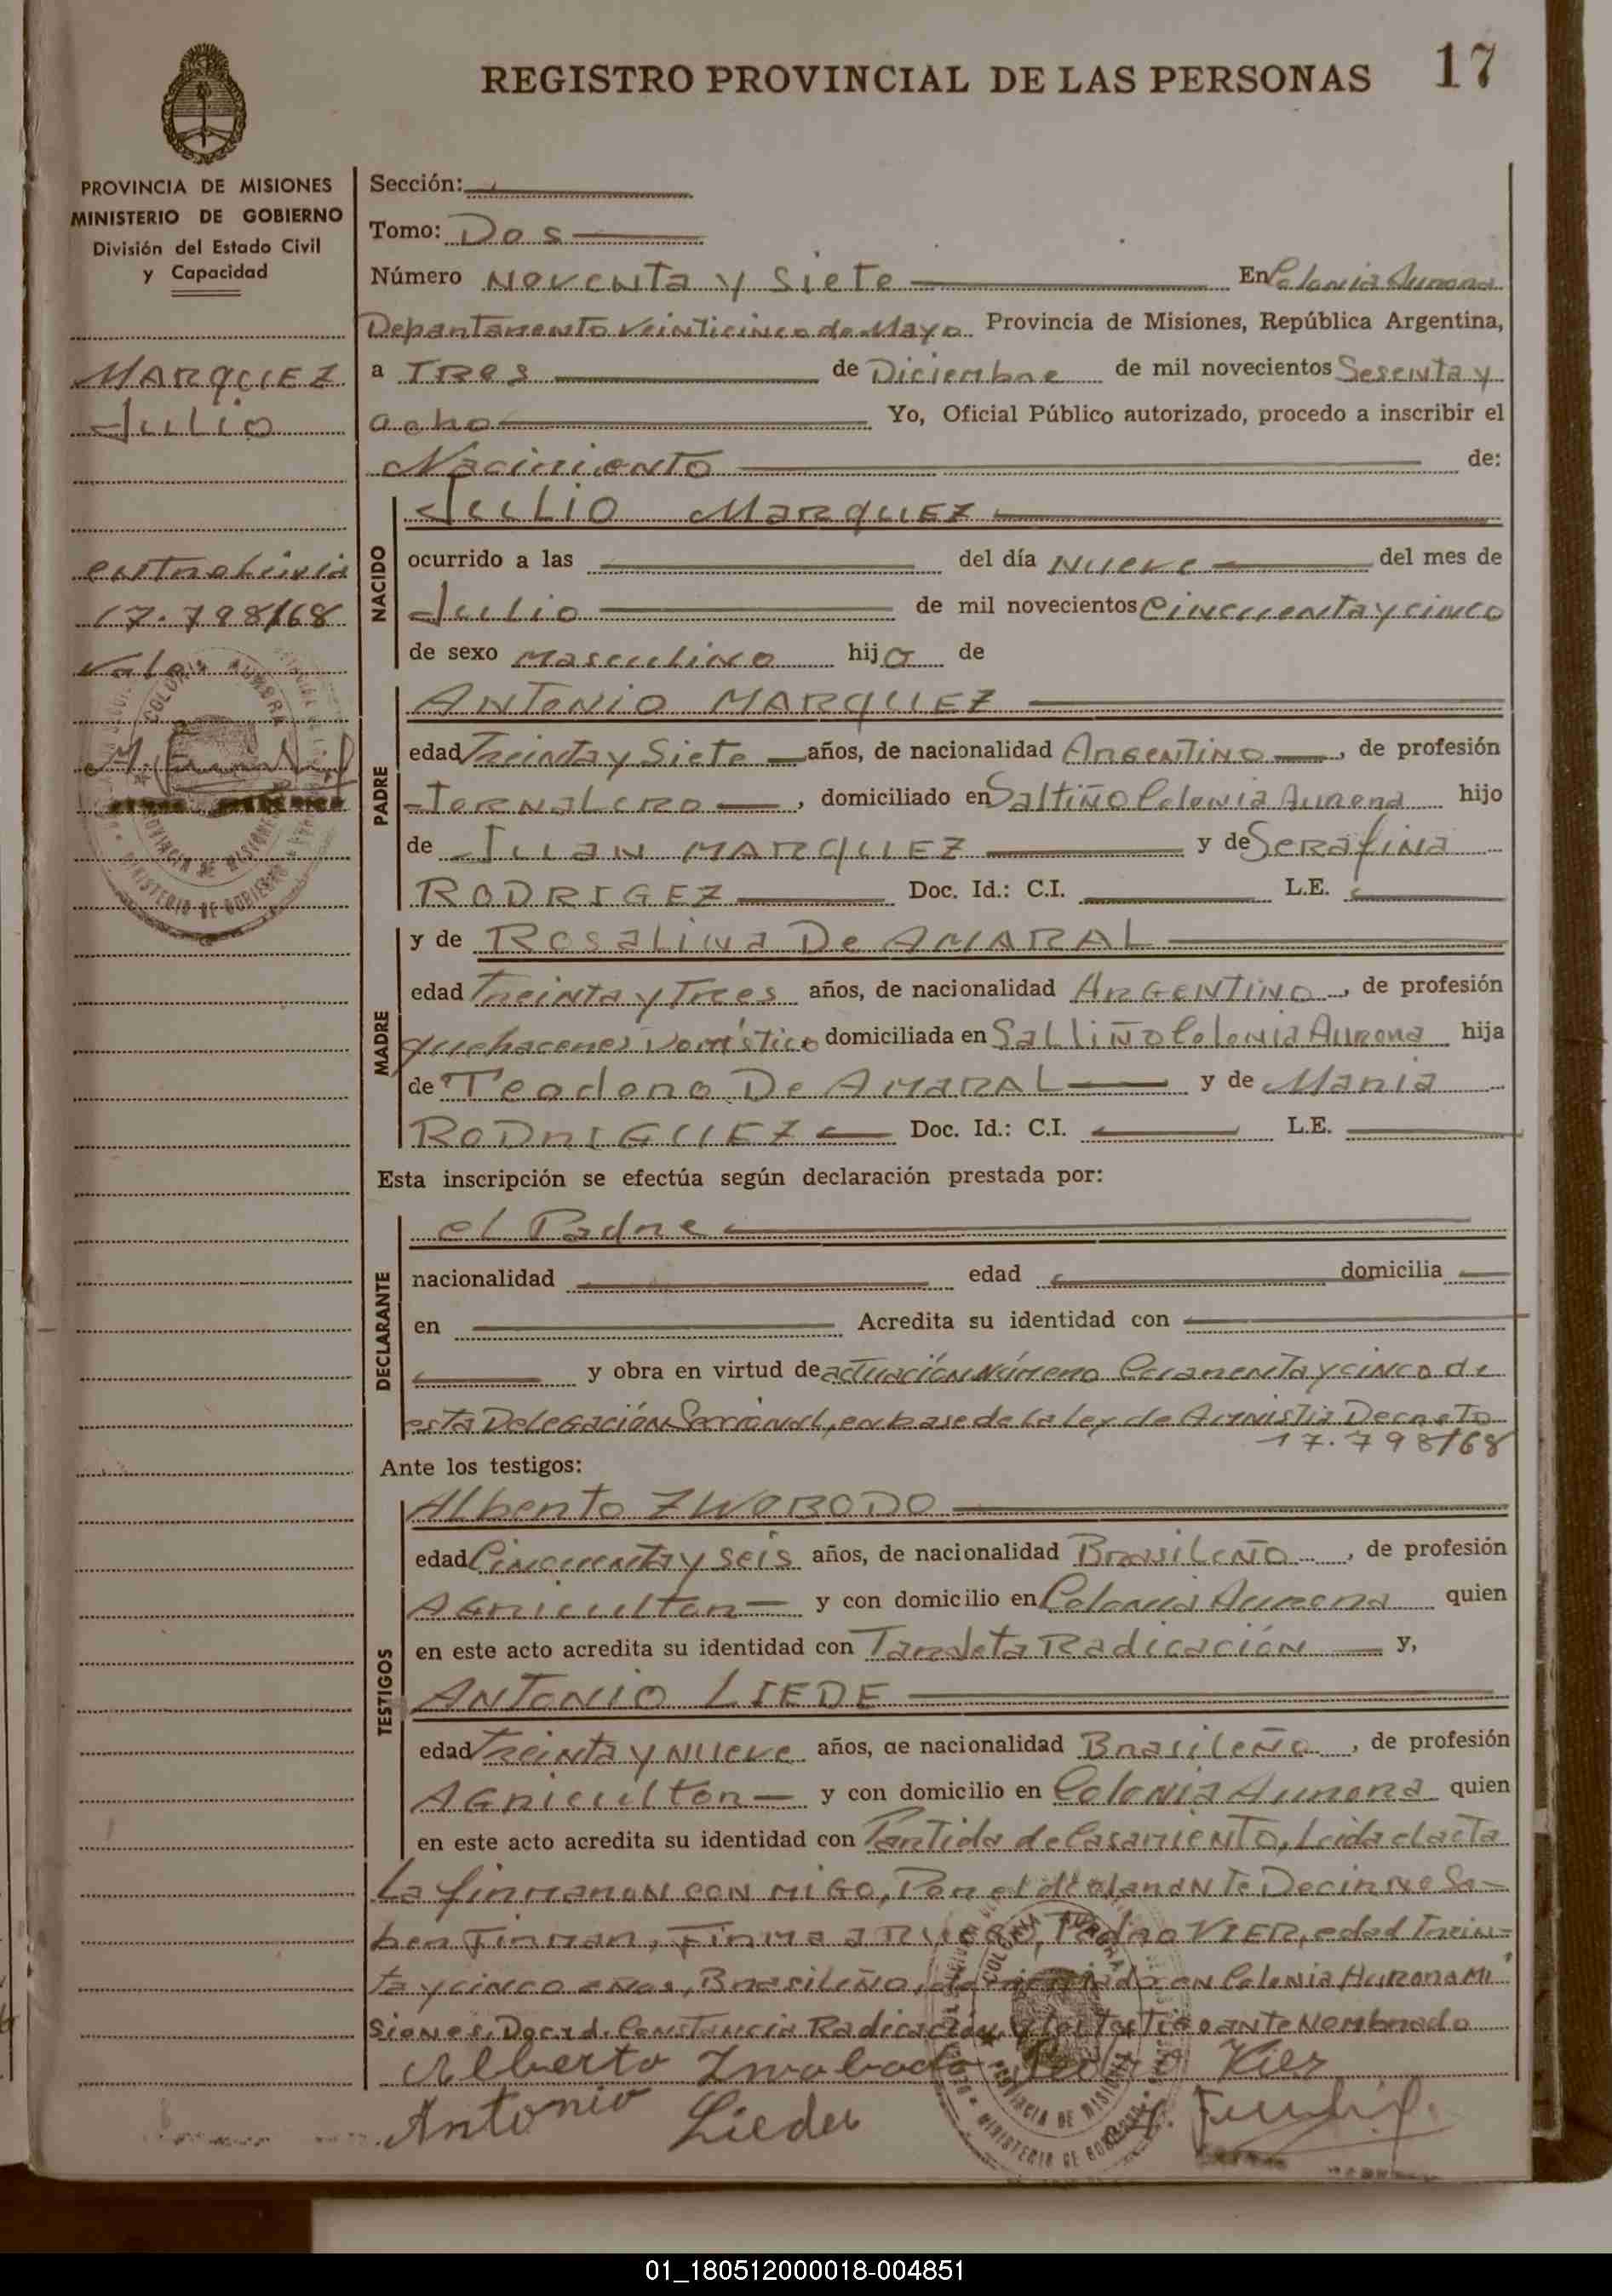 REGISTRO PROVINCIAL DE LAS PERSONAS 17
PROVINCIA DE MISIONES
MINISTERIO DE GOBIERNO
División del Estado Civil
y Capacidad
MARQUEZ
Julio
17.798/68
COLONIA AURORA
PROVINCIA DE MISIONES
MINISTERIO DE GOBIERNO
Sección:
Tomo: Dos
Número Noventa y Siete En Colonia Aurora
Departamento Veinticinco de Mayo Provincia de Misiones, República Argentina,
a Tres de Diciembre de mil novecientos Sesenta y
ocho Yo, Oficial Público autorizado, procedo a inscribir el
Nacimiento de:
NACIDO
Julio Marquez
ocurrido a las del día Nueve del mes de
Julio de mil novecientos Cincuenta y cinco
de sexo Masculino hijo de
PADRE
Antonio MARQUEZ
edad Treinta y Siete años, de nacionalidad Argentino, de profesión
Jornalero, domiciliado en Saltiño Colonia Aurora hijo
de Juan MARQUEZ y de Serafina
RODRIGEZ Doc. Id.: C.I. L.E.
MADRE
y de Rosalina De AMARAL
edad Treinta y Tres años, de nacionalidad Argentino, de profesión
quehaceres Doméstico domiciliada en Saltiño Colonia Aurora hija
de Teodoro De AMARAL y de Maria
RODRIGUEZ Doc. Id.: C.I. L.E.
Esta inscripción se efectúa según declaración prestada por:
DECLARANTE
el Padre
nacionalidad edad domicilia
en Acredita su identidad con
y obra en virtud de actuación Número Cuarenta y cinco de
esta Delegación Seccional, en base de la Ley de Amnistia Decreto
17.798/68
Ante los testigos:
TESTIGOS
Alberto ZWOBODO
edad Cincuenta y seis años, de nacionalidad Brasileño, de profesión
Agricultor y con domicilio en Colonia Aurora quien
en este acto acredita su identidad con Tarjeta Radicación y,
Antonio LIEDE
edad Treinta y Nueve años, de nacionalidad Brasileño, de profesión
Agricultor y con domicilio en Colonia Aurora quien
en este acto acredita su identidad con Partida de Casamiento, Leida el acta
La firmaron con migo, Por el declarante Decir no Sa-
ber Firmar, Firma a ruego, Pedro VIER, edad Trein-
ta y cinco años, Brasileño, domiciliado en Colonia Aurora Mi
siones, Doc.Id. Constancia Radicación y los Testigo ante Nombrado
Alberto Zwobodo Pedro Vier
Antonio Lieder
COLONIA AURORA
PROVINCIA DE MISIONES
MINISTERIO DE GOBIERNO
01_180512000018-004851